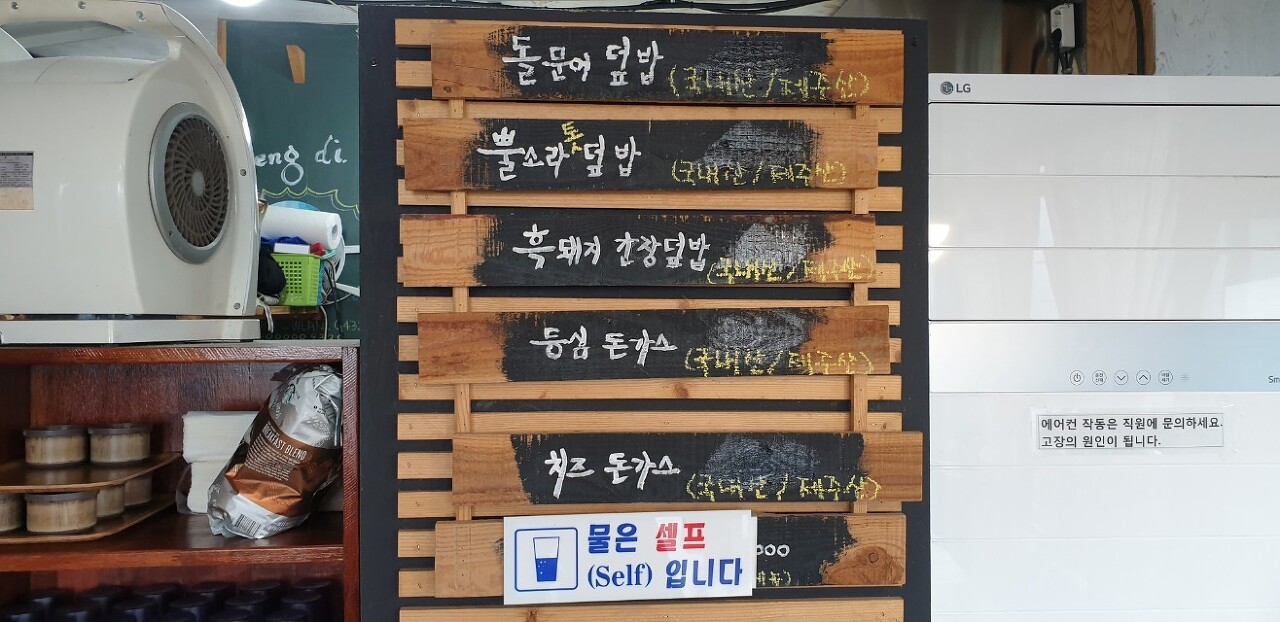 돌문어 덮밥 (국내산/제주산)
뿔소라톳덮밥 (국내산/제주산)
흑돼지 간장덮밥 (국내산/제주산)
등심 돈까스 (국내산/제주산)
치즈 돈까스 (국내산/제주산)
물은 셀프
(Self) 입니다
000
eng di.
BREAKFAST BLEND
LG
에어컨 작동은 직원에 문의하세요.
고장의 원인이 됩니다.